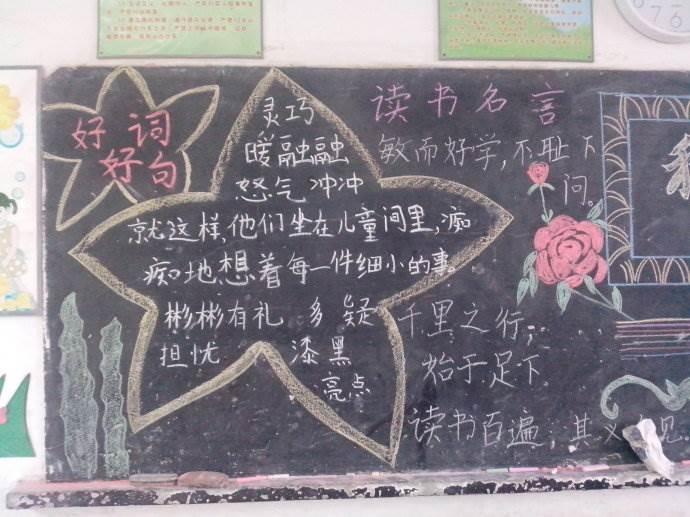 好词
好句
灵巧
暖融融
怒气冲冲
就这样,他们坐在儿童间里,痴
痴地想着每一件细小的事。
彬彬有礼 多疑
担忧 漆黑
亮点
读书名言
敏而好学,不耻下
问。
千里之行,
始于足下
读书百遍,其义自见